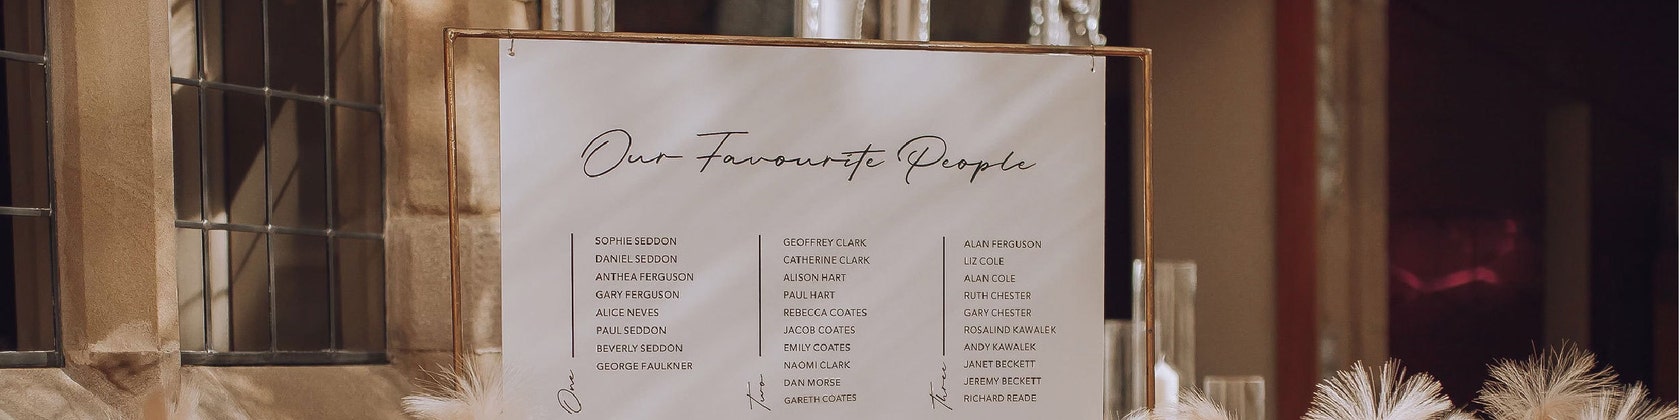 Our Favourite People
One
SOPHIE SEDDON
DANIEL SEDDON
ANTHEA FERGUSON
GARY FERGUSON
ALICE NEVES
PAUL SEDDON
BEVERLY SEDDON
GEORGE FAULKNER
Two
GEOFFREY CLARK
CATHERINE CLARK
ALISON HART
PAUL HART
REBECCA COATES
JACOB COATES
EMILY COATES
NAOMI CLARK
DAN MORSE
GARETH COATES
Three
ALAN FERGUSON
LIZ COLE
ALAN COLE
RUTH CHESTER
GARY CHESTER
ROSALIND KAWALEK
ANDY KAWALEK
JANET BECKETT
JEREMY BECKETT
RICHARD READE